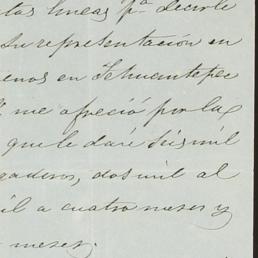 tas líneas pª. decirle
su representación en
enos en Tehuantepec
me ofreció por la
que le daré seis mil
gaderos, dos mil al
il a cuatro meses y
meses.